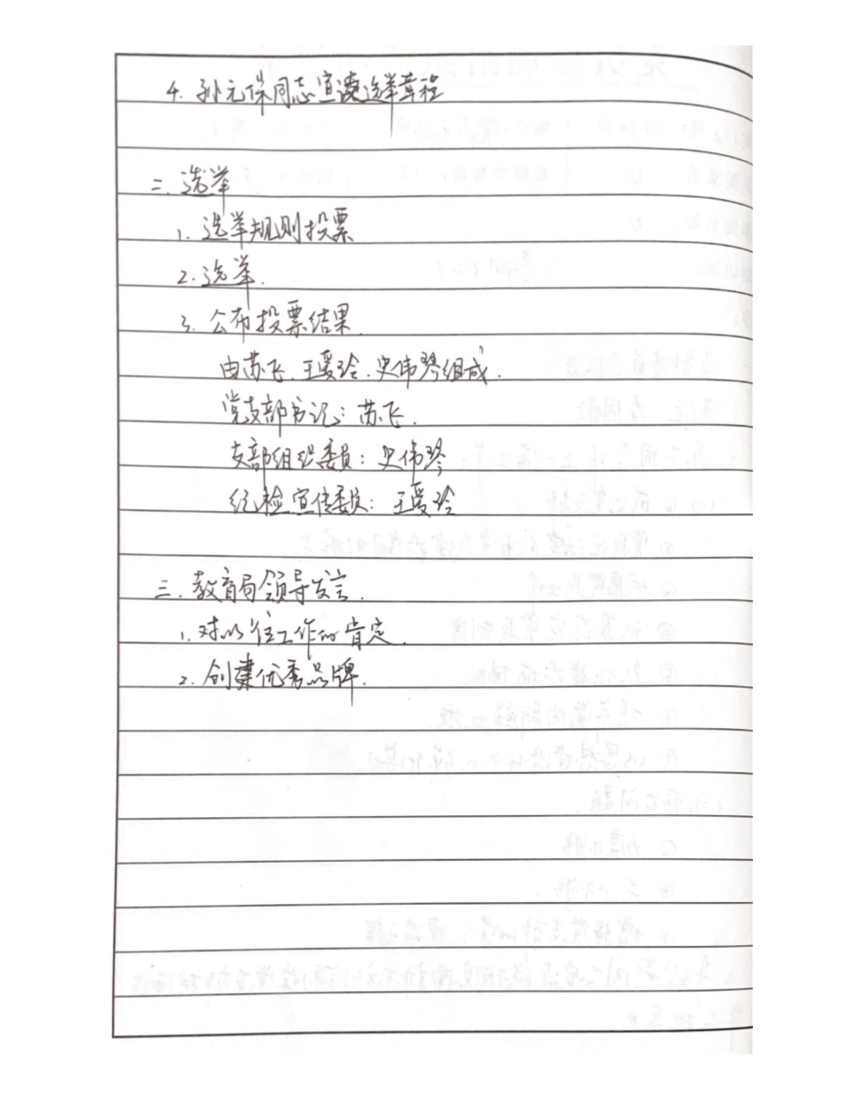 4. 孙元保同志宣读选举章程
二. 选举
1. 选举规则投票
2. 选举.
3. 公布投票结果.
由苏飞.王爱玲.史伟琴组成.
党支部书记: 苏飞.
支部组织委员: 史伟琴
纪检宣传委员: 王爱玲
三. 教育局领导发言.
1. 对以往工作的肯定.
2. 创建优秀品牌.